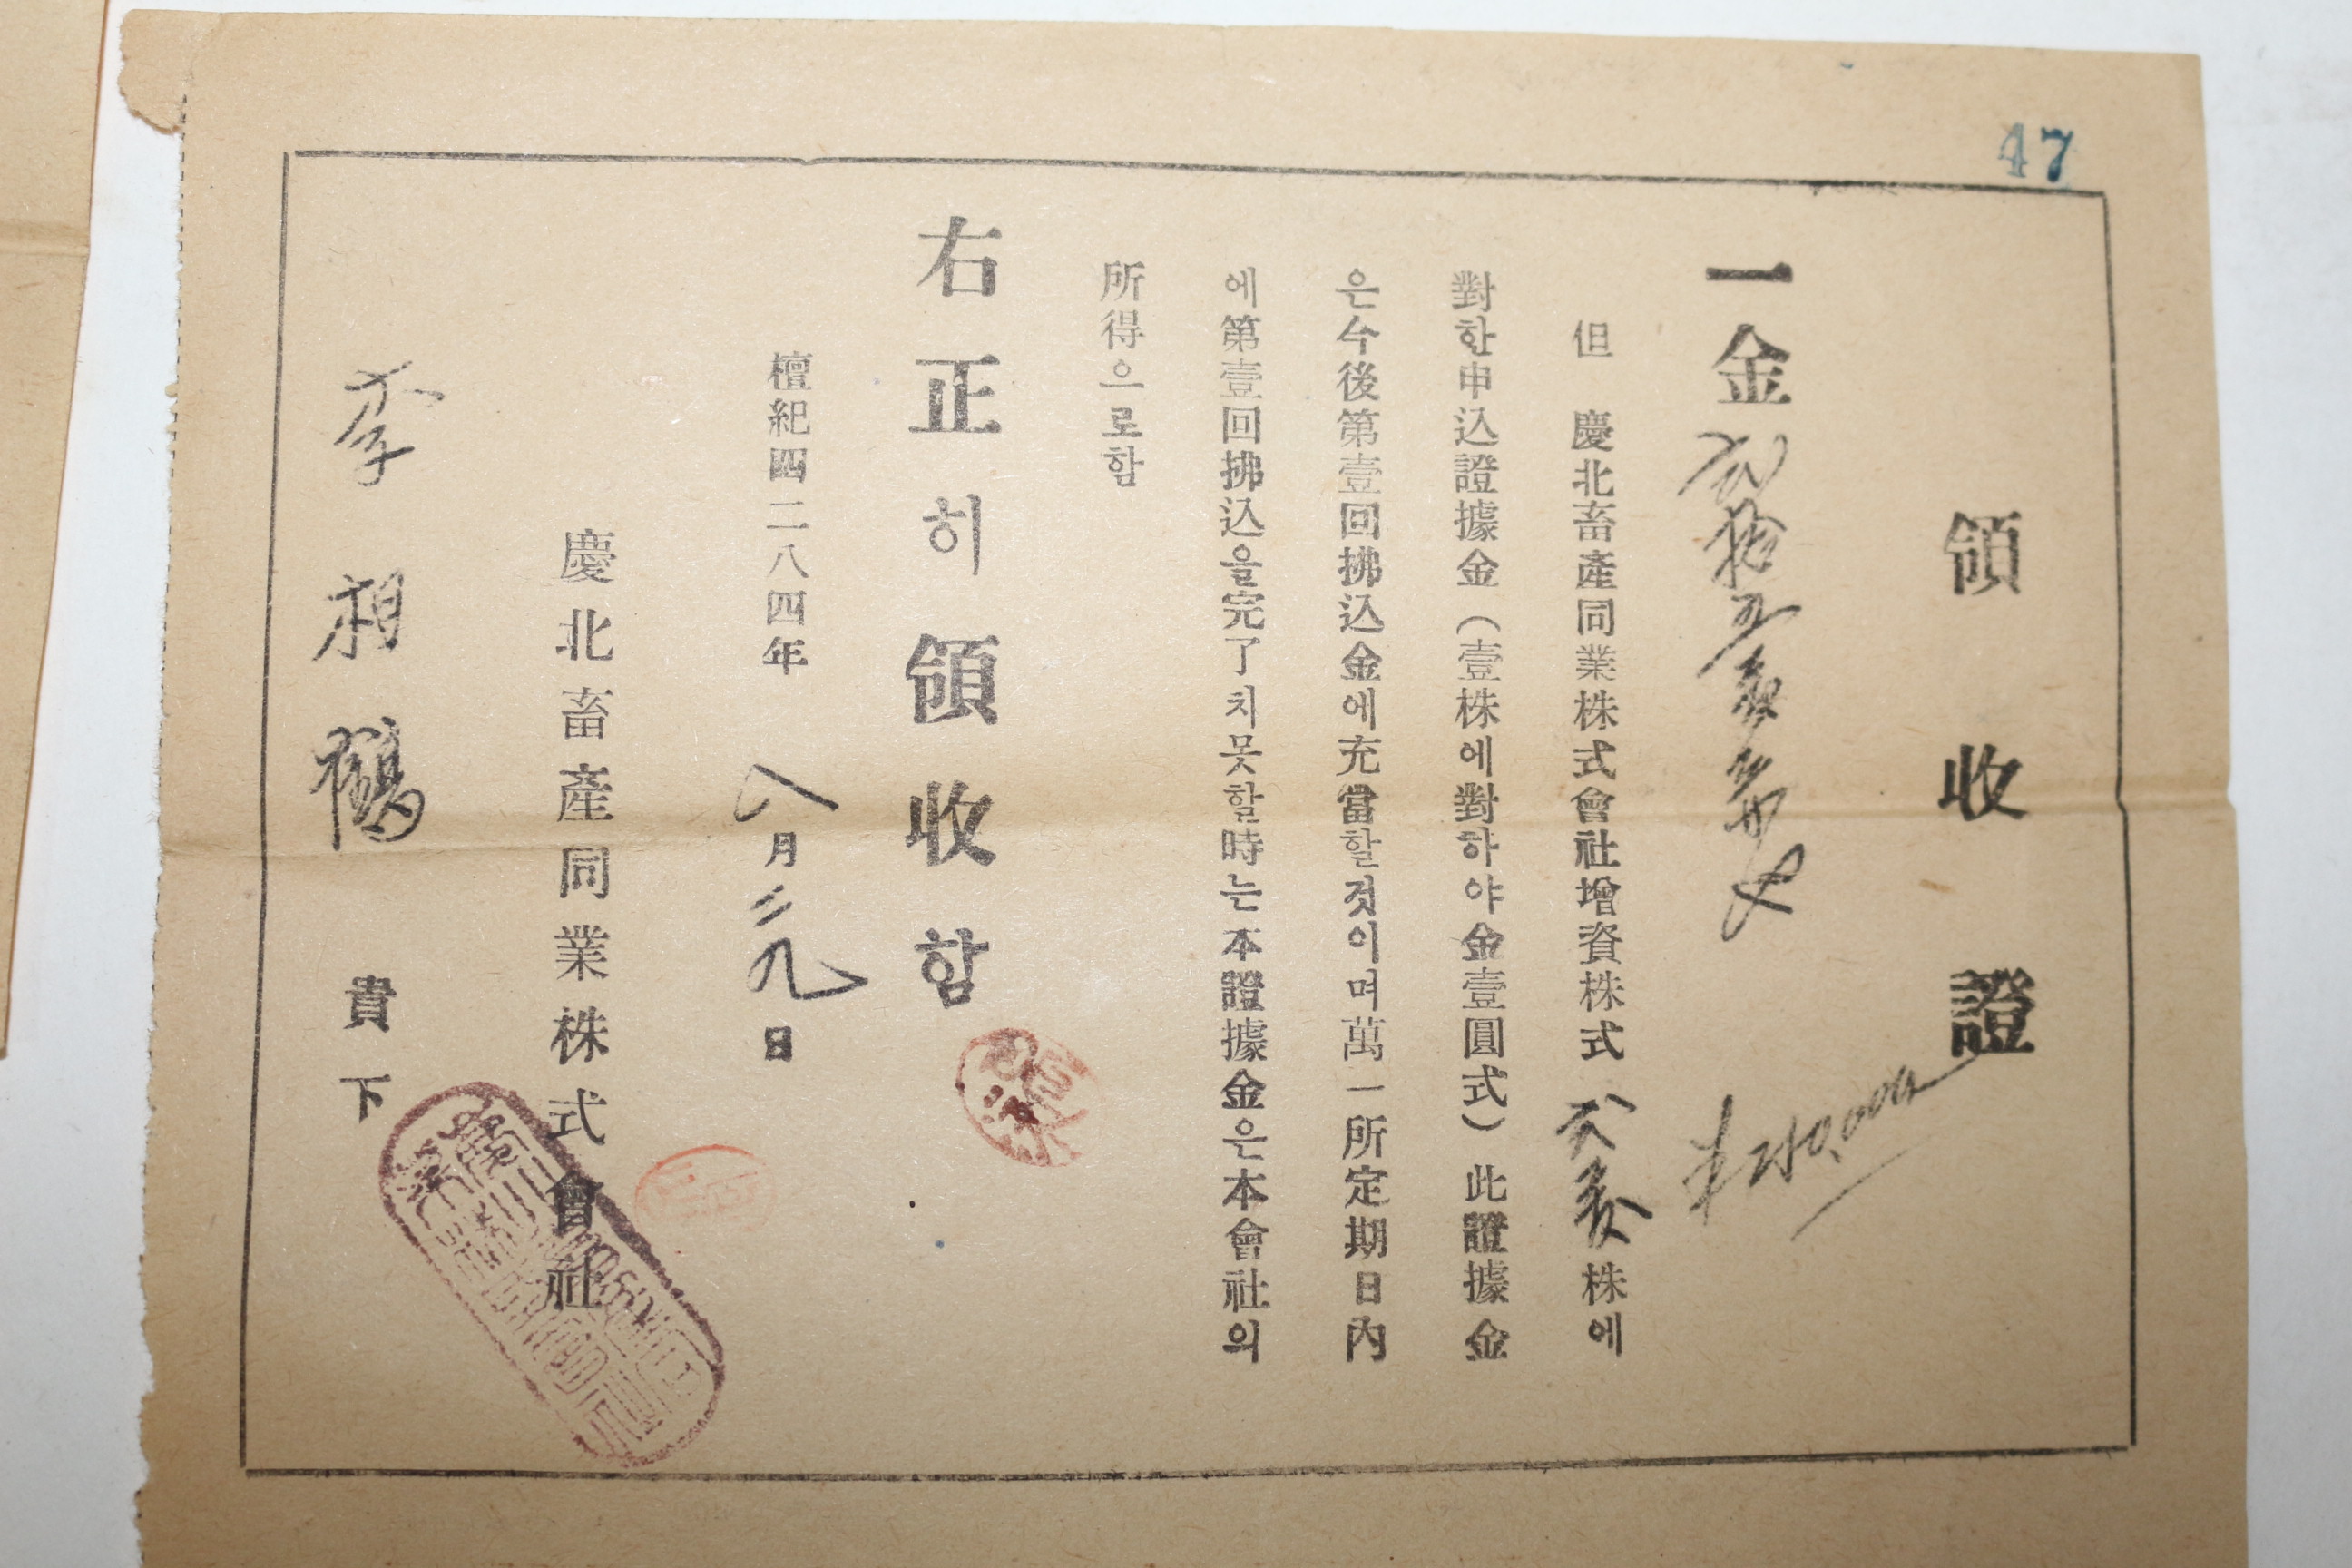 47
領收證
一金
但 慶北畜產同業株式會社增資株式 株에
對한申込證據金(壹株에對하야金壹圓式)此證據金
은今後第壹回拂込金에充當할것이며萬一所定期日內
에第壹回拂込을完了치못할時는本證據金은本會社의
所得으로함
右正히領收함
檀紀四二八四年 八月二九日
慶北畜產同業株式會社
李相鶴 貴下